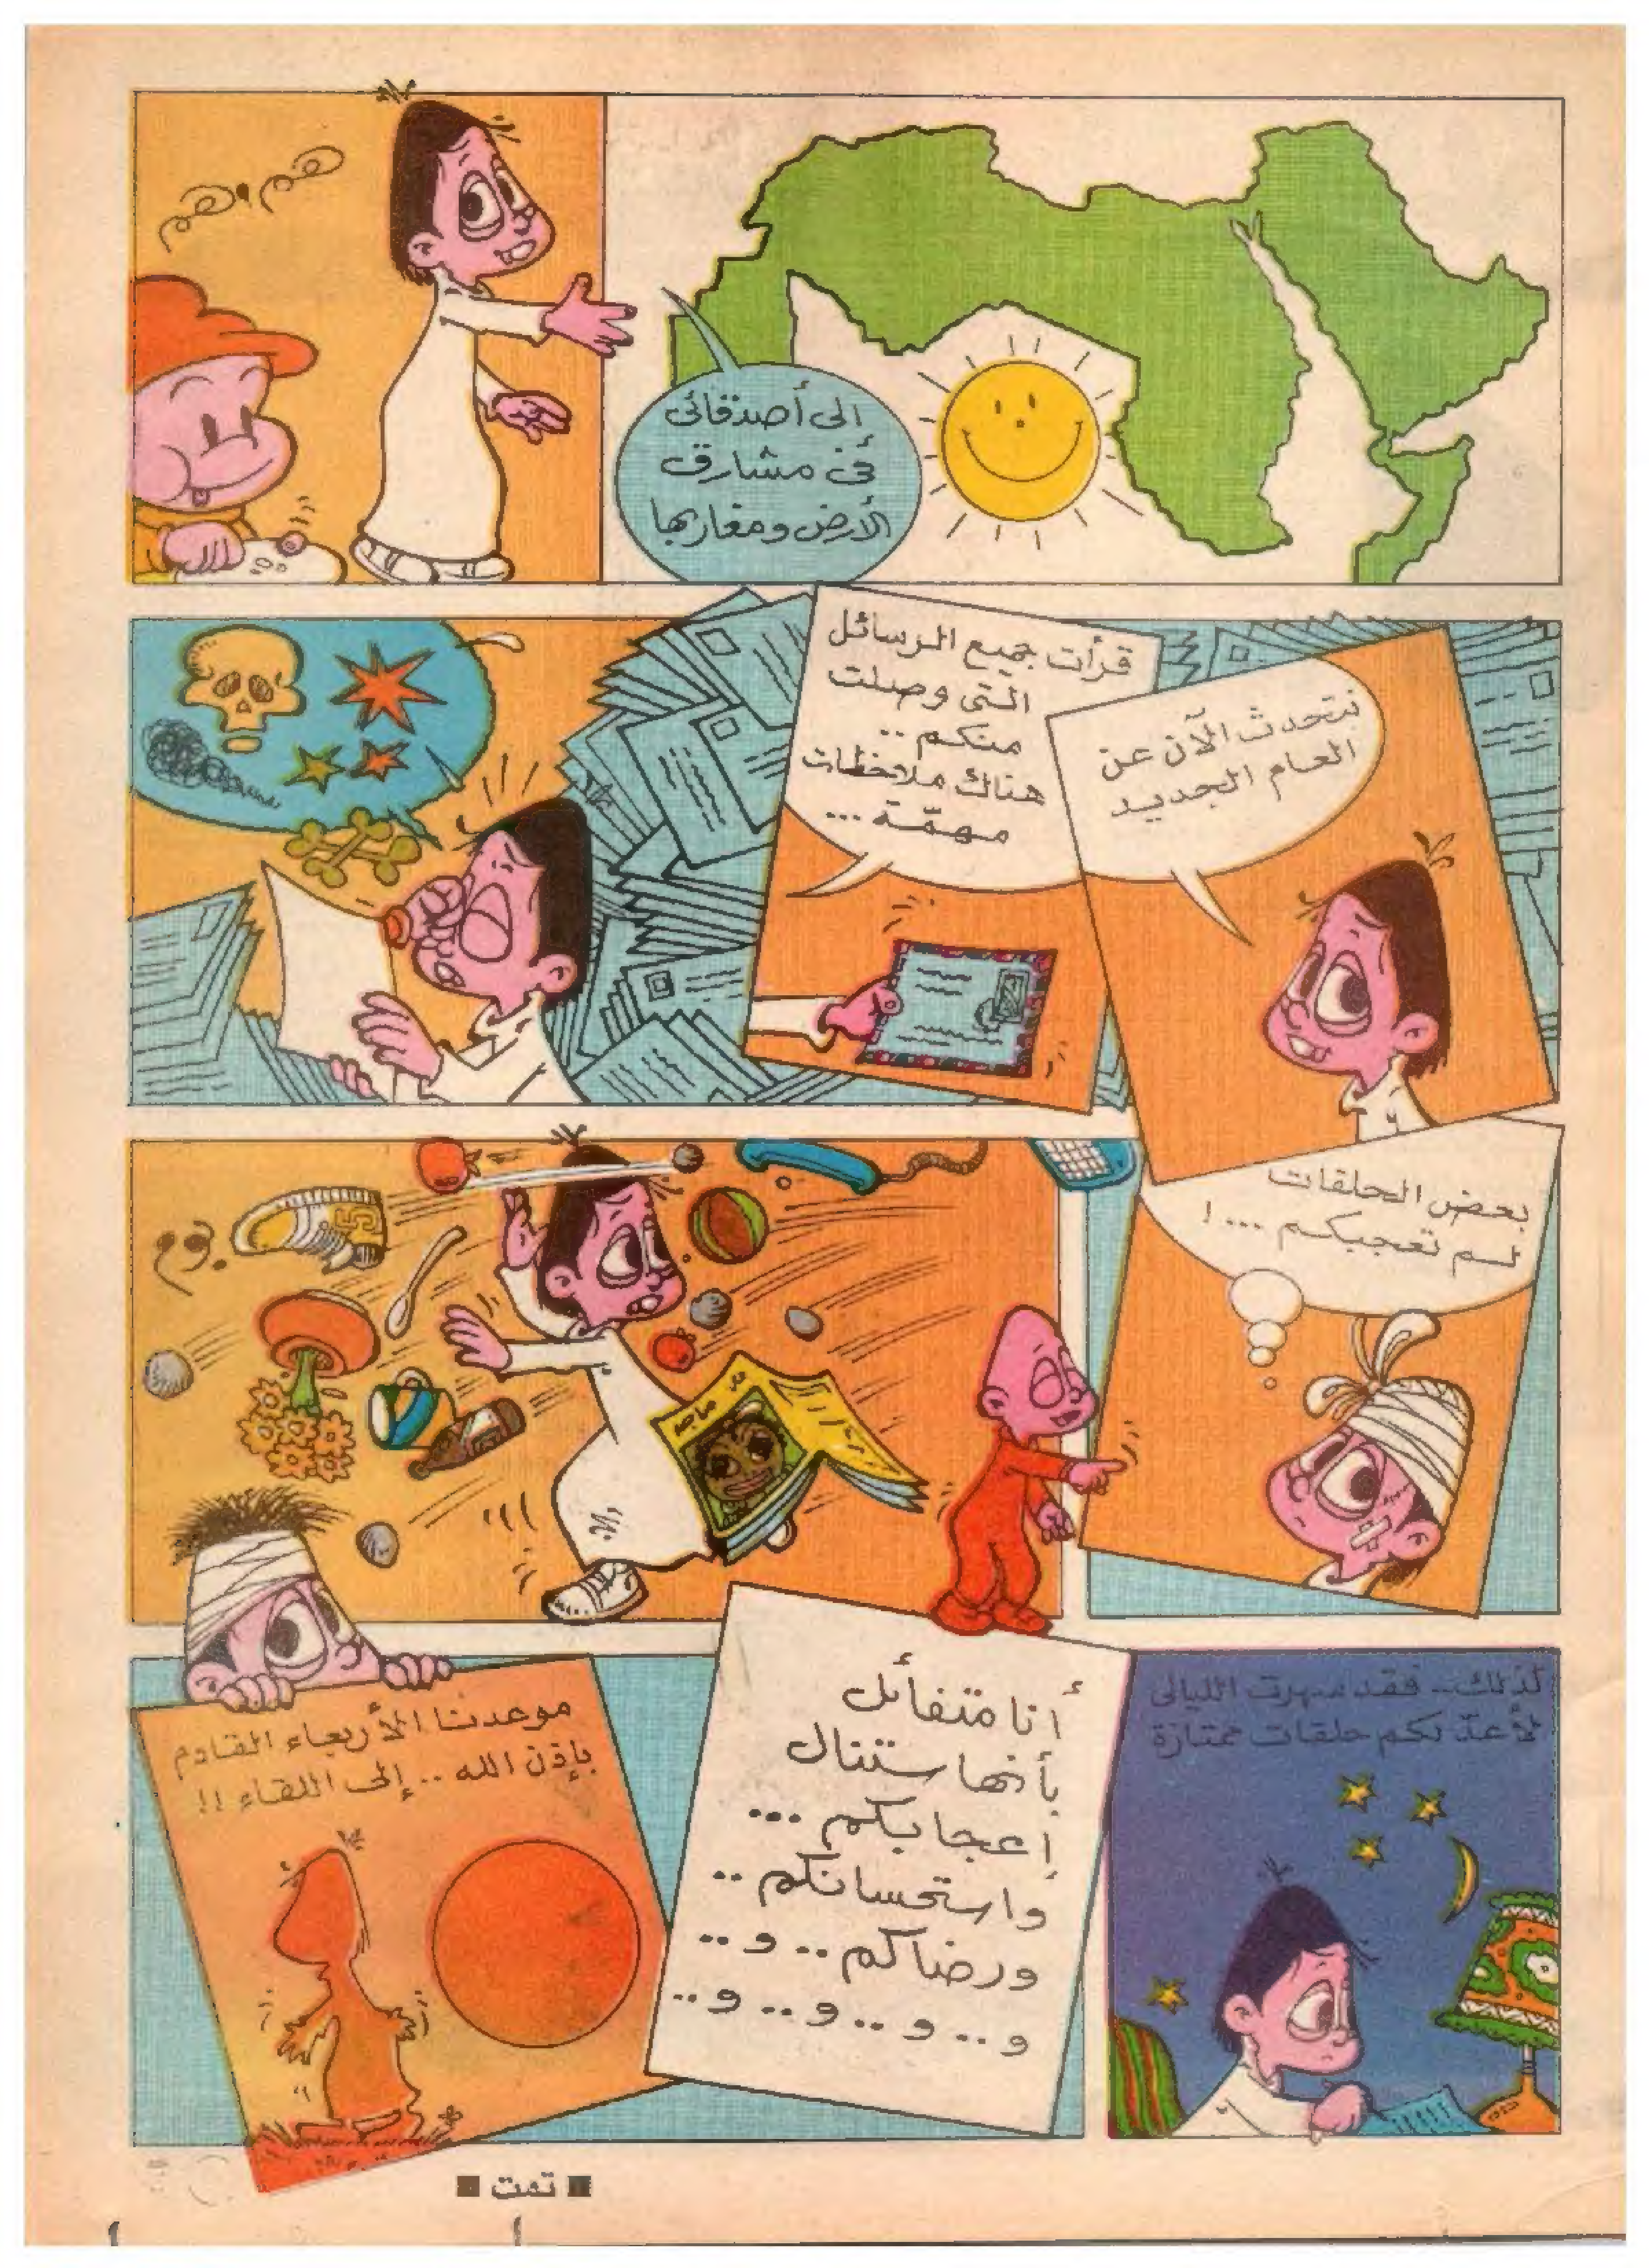 إلى أصدقائى
فى مشارق
الأرض ومغاربها
هم.هم
نتحدث الآن عن
العام الجديد
قرأت جميع الرسائل
التى وصلت
منكم ..
هناك ملاحظات
مهمّة ...
بعض الحلقات
لم تعجبكم ... !
ماجد
بوم
لذلك .. فقد سهرت الليالى
لأعدّ لكم حلقات ممتازة
أنا متفائل
بأنها ستنال
إعجابكم ...
واستحسانكم ..
ورضاكم .. و ..
و .. و .. و .. و ..
موعدنا الأربعاء القادم
بإذن الله .. إلى اللقاء !!
■ تمت ■